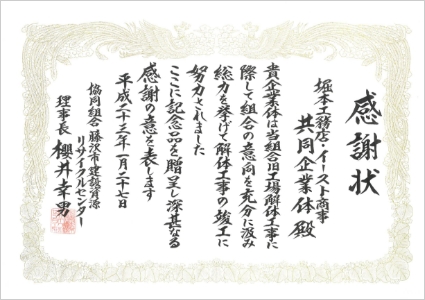 感謝状
堀本工務店・イースト商事
共同企業体殿
貴企業体は当組合旧工場解体工事に
際して組合の意向を充分に汲み
総力を挙げて解体工事の竣工に
努力されました
ここに記念品を贈呈し深甚なる
感謝の意を表します
平成二十三年一月二十七日
協同組合 藤沢市建設資源
リサイクルセンター
理事長 櫻井幸男